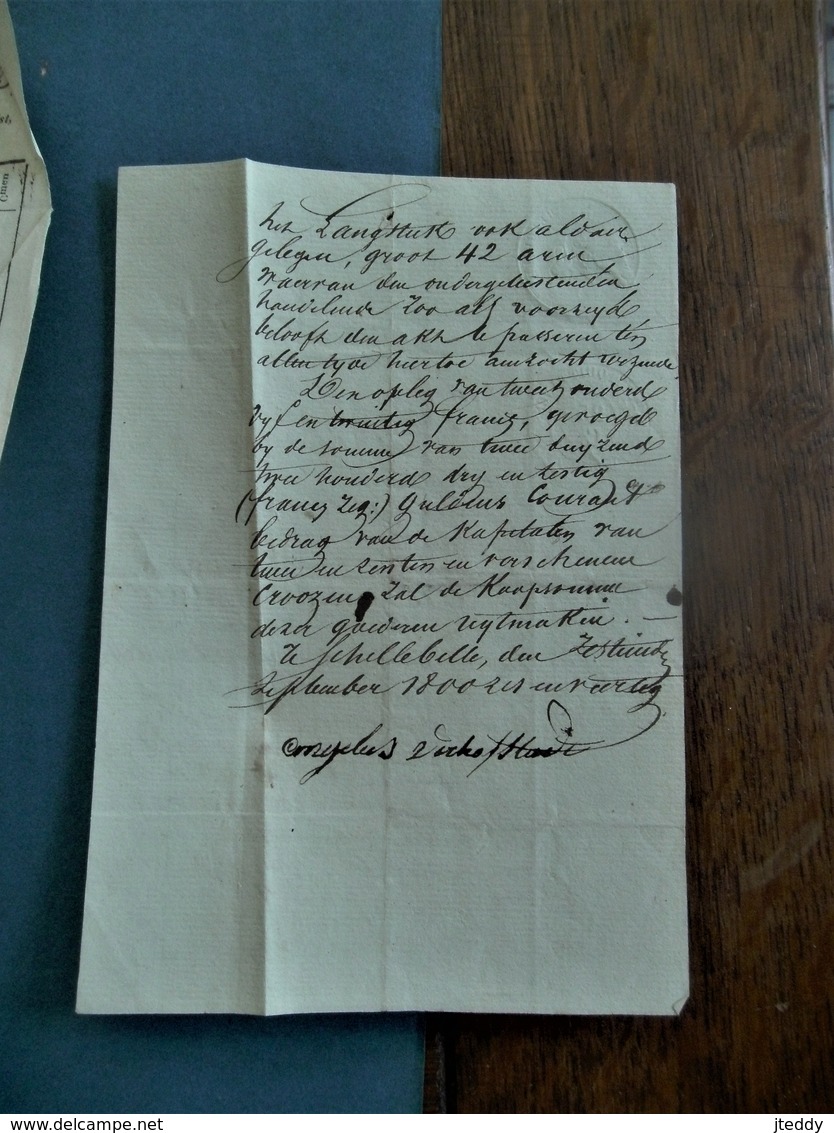 het Langstuk ook aldaer
gelegen, groot 42 aren
waervan den ondergeteekenden
handelende zoo als voorzeyd
beloofd den akt te passeren ten
allen tyde hiertoe aenzocht wezende.
Den opleg van tweehonderd
vyf en twintig francs, gevoegd
by de somme van twee duyzend
twee honderd dry en testig
(francs zeg:) Guldens Courant
bedrag van de Kapitalen van
twee en renten en verschenene
Croozen, zal de Koopsomme
dezer goederen uytmaken. —
Te Schellebelle, den zestienden
September 1800 zes en veertig
Verhofstade
www.delcampe.net
jteddy